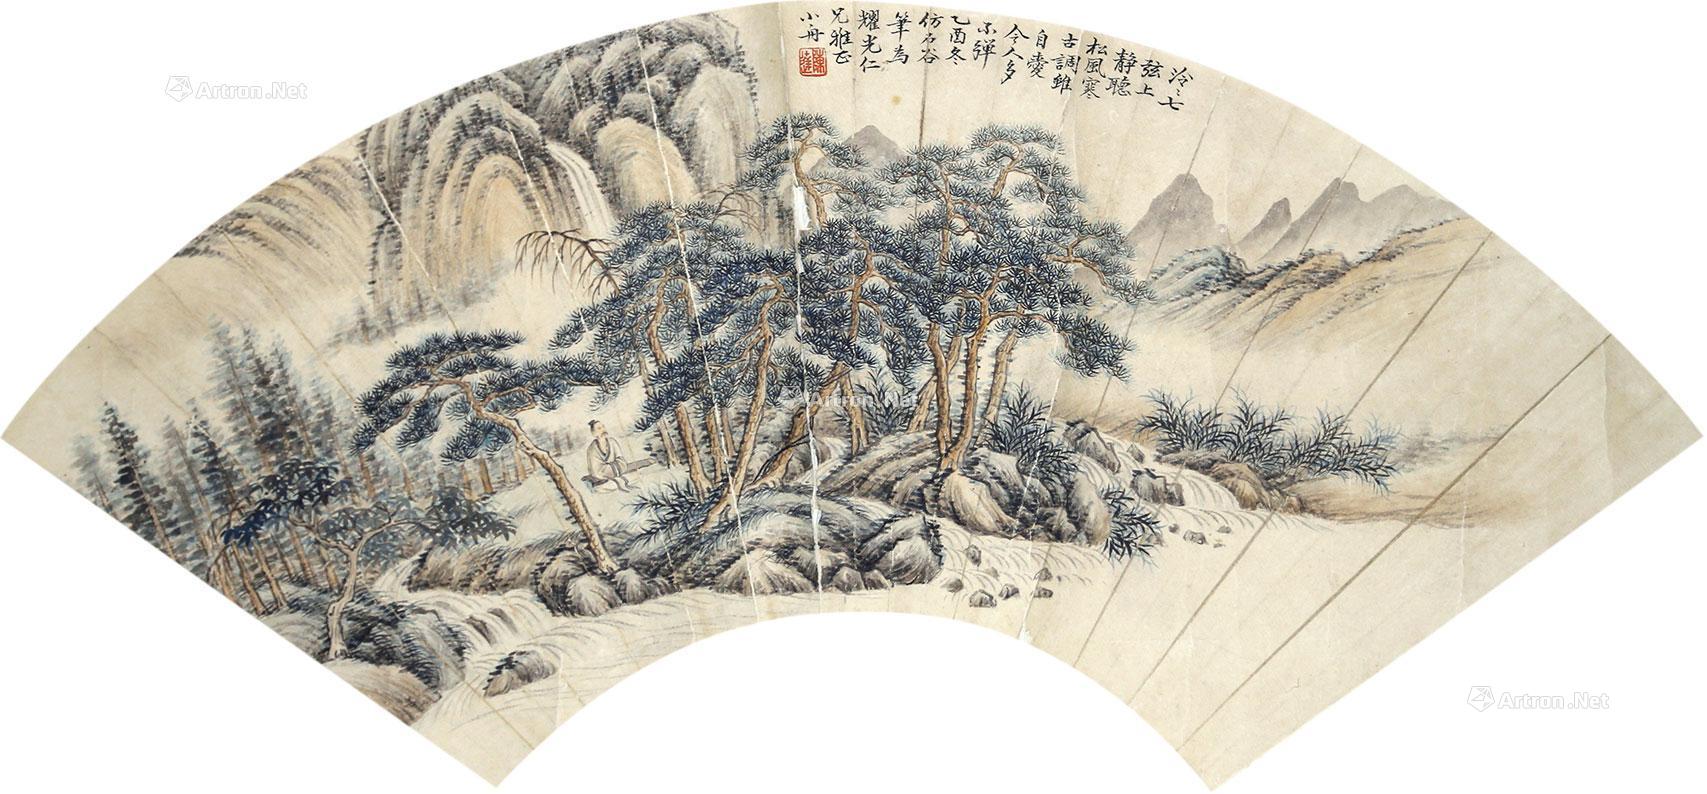 泠〻七
弦上
静聽
松風寒
古調雖
自愛
今人多
不彈
乙酉冬
仿石谷
筆為
耀光仁
兄雅正
小舟
Artron.Net
Artron.Net
Artron.Net